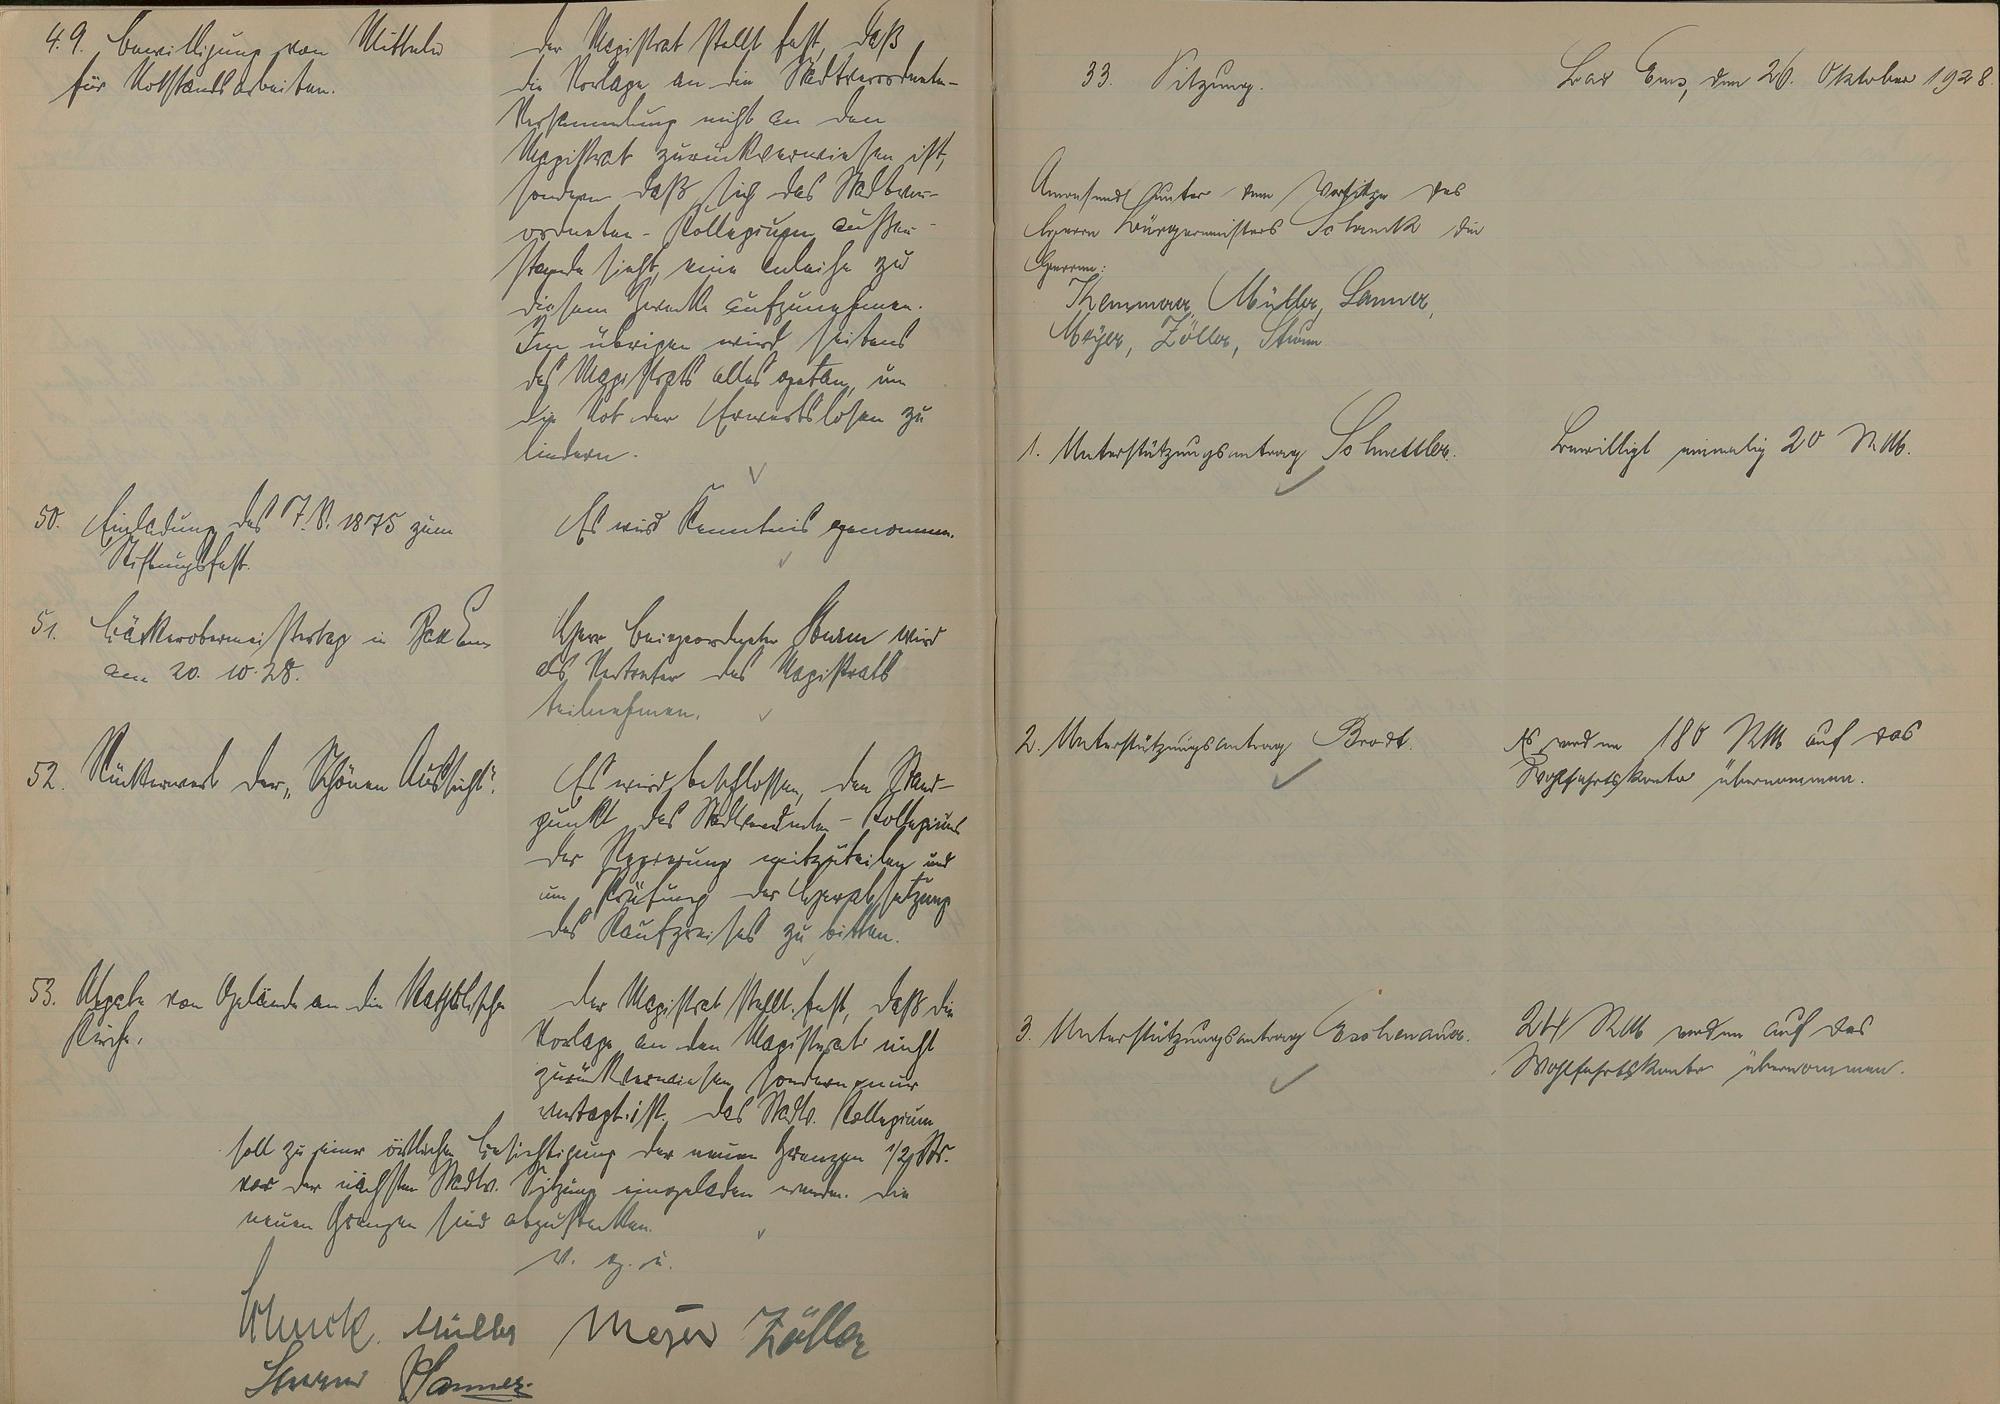 49. Bewilligung von Mitteln
für Notstandsarbeiten.
Der Magistrat stellt fest, daß
die Vorlage an die Stadtverordneten-
Versammlung nicht an den
Magistrat zurückverwiesen ist,
sondern daß sich das Stadtver-
ordneten-Kollegium außer-
stande sieht, eine Anleihe zu
diesem Zwecke aufzunehmen.
Im übrigen wird seitens
des Magistrats alles getan, um
die Not der Erwerbslosen zu
lindern.
50. Einladung des T.V. 1875 zum
Stiftungsfest.
Es wird Kenntnis genommen.
51. Bäckerobermeistertag in Bad Ems
am 20. 10. 28.
Herr Beigeordneter Sturm wird
als Vertreter des Magistrats
teilnehmen.
52. Rückerwerb der „Schönen Aussicht".
Es wird beschlossen, den Stand-
punkt des Stadtverordneten-Kollegiums
der Regierung mitzuteilen und
um Prüfung der Herabsetzung
des Kaufpreises zu bitten.
53. Abgabe von Gelände an die Katholische
Kirche.
Der Magistrat stellt fest, daß die
Vorlage an den Magistrat nicht
zurückverwiesen, sondern nur
vertagt ist. Das Stadtv. Kollegium
soll zu einer örtlichen Besichtigung der neuen Grenzen 1/2 Std.
vor der nächsten Stadtv. Sitzung eingeladen werden. Die
neuen Grenzen sind abzustecken.
v. g. u.
Schreck. Müller Meyer Zöller
Sturm Sanner
33. Sitzung.
Bad Ems, den 26. Oktober 1928.
Anwesend unter dem Vorsitze des
Herrn Bürgermeisters Schreck die
Herren:
Themmer, Müller, Sanner,
Meyer, Zöller, Sturm
1. Unterstützungsantrag Schmettler.
Bewilligt einmalig 20 RM.
2. Unterstützungsantrag Brodt.
Es werden 180 RM auf das
Wohlfahrtskonto übernommen.
3. Unterstützungsantrag Eschenauer.
RM werden auf das
Wohlfahrtskonto übernommen.